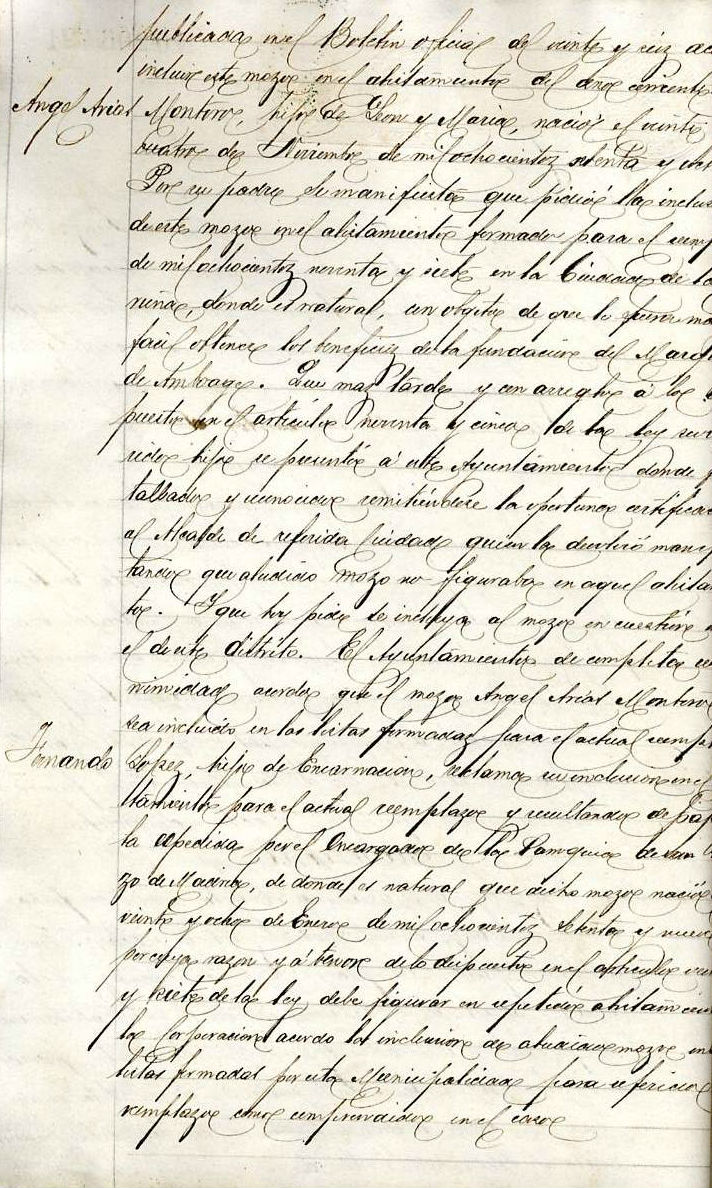 publicada en el Boletin oficial del veinte y seis ac
incluir este mozo en el alistamiento del año corriente
Angel Arias Montero, hijo de Leon y Maria, nació el veinte
cuatro de Noviembre de mil ochocientos setenta y
Por su padre se manifiesta que pidió la inclus
de este mozo en el alistamiento formado para el reemp
de mil ochocientos noventa y siete en la Ciudad de la
ruña, donde es natural, con objeto de que le fuera ma
facil obtener los beneficios de la fundacion del Marq
de Amboage. Que mas tarde y con arreglo á lo
puesto en el articulo noventa y cinco de la ley
rido hijo se presentó á este Ayuntamiento donde
tallado y reconocido remitiendose la oportuna certificac
al Alcalde de referida Ciudad quien la devolvió manif
tando que aludido mozo no figuraba en aquel alista
to. Y que hoy pide se incluya al mozo en cuestion
el de este distrito. El Ayuntamiento de completa
nimidad acordó que el mozo Angel Arias Montero
sea incluido en las listas formadas para el actual reemp
Fernando Lopez, hijo de Encarnacion, reclama su inclusion en el
tamiento para el actual reemplazo y resultando de pap
la espedida por el Encargado de la Parroquia de San
zo de Madrid, de donde es natural que dicho mozo nació
veinte y ocho de Enero de mil ochocientos setenta y nueve
por cuya razon y á tenor de lo dispuesto en el articulo
y siete de la ley debe figurar en repetido alistamien
la Corporacion acordó la inclusion de aludido mozo en
listas formadas por esta Municipalidad para referido
remplazo como comprendido en el caso